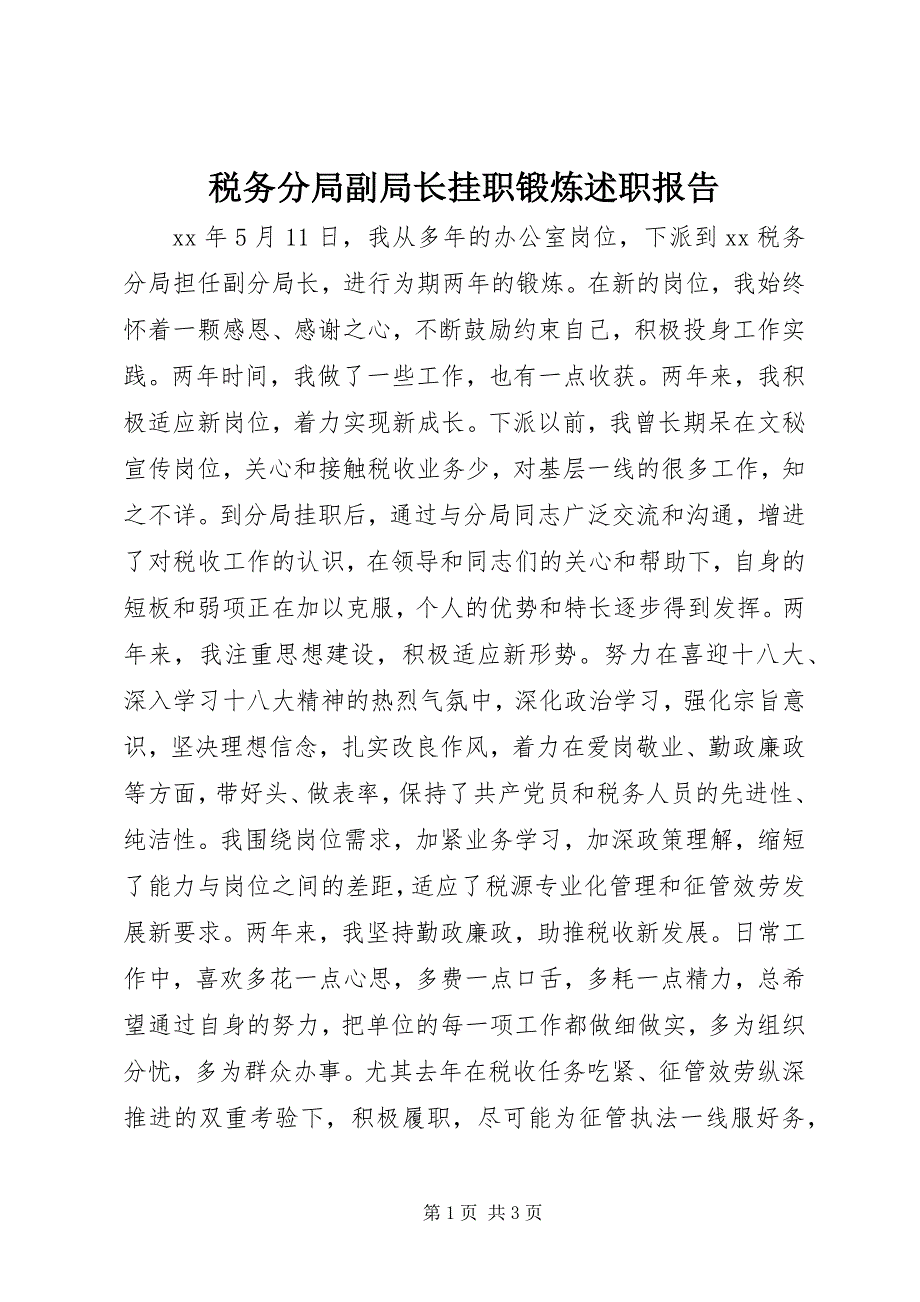 税务分局副局长挂职锻炼述职报告
xx 年 5 月 11 日，我从多年的办公室岗位，下派到 xx 税务
分局担任副分局长，进行为期两年的锻炼。在新的岗位，我始终
怀着一颗感恩、感谢之心，不断鼓励约束自己，积极投身工作实
践。两年时间，我做了一些工作，也有一点收获。两年来，我积
极适应新岗位，着力实现新成长。下派以前，我曾长期呆在文秘
宣传岗位，关心和接触税收业务少，对基层一线的很多工作，知
之不详。到分局挂职后，通过与分局同志广泛交流和沟通，增进
了对税收工作的认识，在领导和同志们的关心和帮助下，自身的
短板和弱项正在加以克服，个人的优势和特长逐步得到发挥。两
年来，我注重思想建设，积极适应新形势。努力在喜迎十八大、
深入学习十八大精神的热烈气氛中，深化政治学习，强化宗旨意
识，坚决理想信念，扎实改良作风，着力在爱岗敬业、勤政廉政
等方面，带好头、做表率，保持了共产党员和税务人员的先进性、
纯洁性。我围绕岗位需求，加紧业务学习，加深政策理解，缩短
了能力与岗位之间的差距，适应了税源专业化管理和征管效劳发
展新要求。两年来，我坚持勤政廉政，助推税收新发展。日常工
作中，喜欢多花一点心思，多费一点口舌，多耗一点精力，总希
望通过自身的努力，把单位的每一项工作都做细做实，多为组织
分忧，多为群众办事。尤其去年在税收任务吃紧、征管效劳纵深
推进的双重考验下，积极履职，尽可能为征管执法一线服好务，
第 1 页 共 3 页